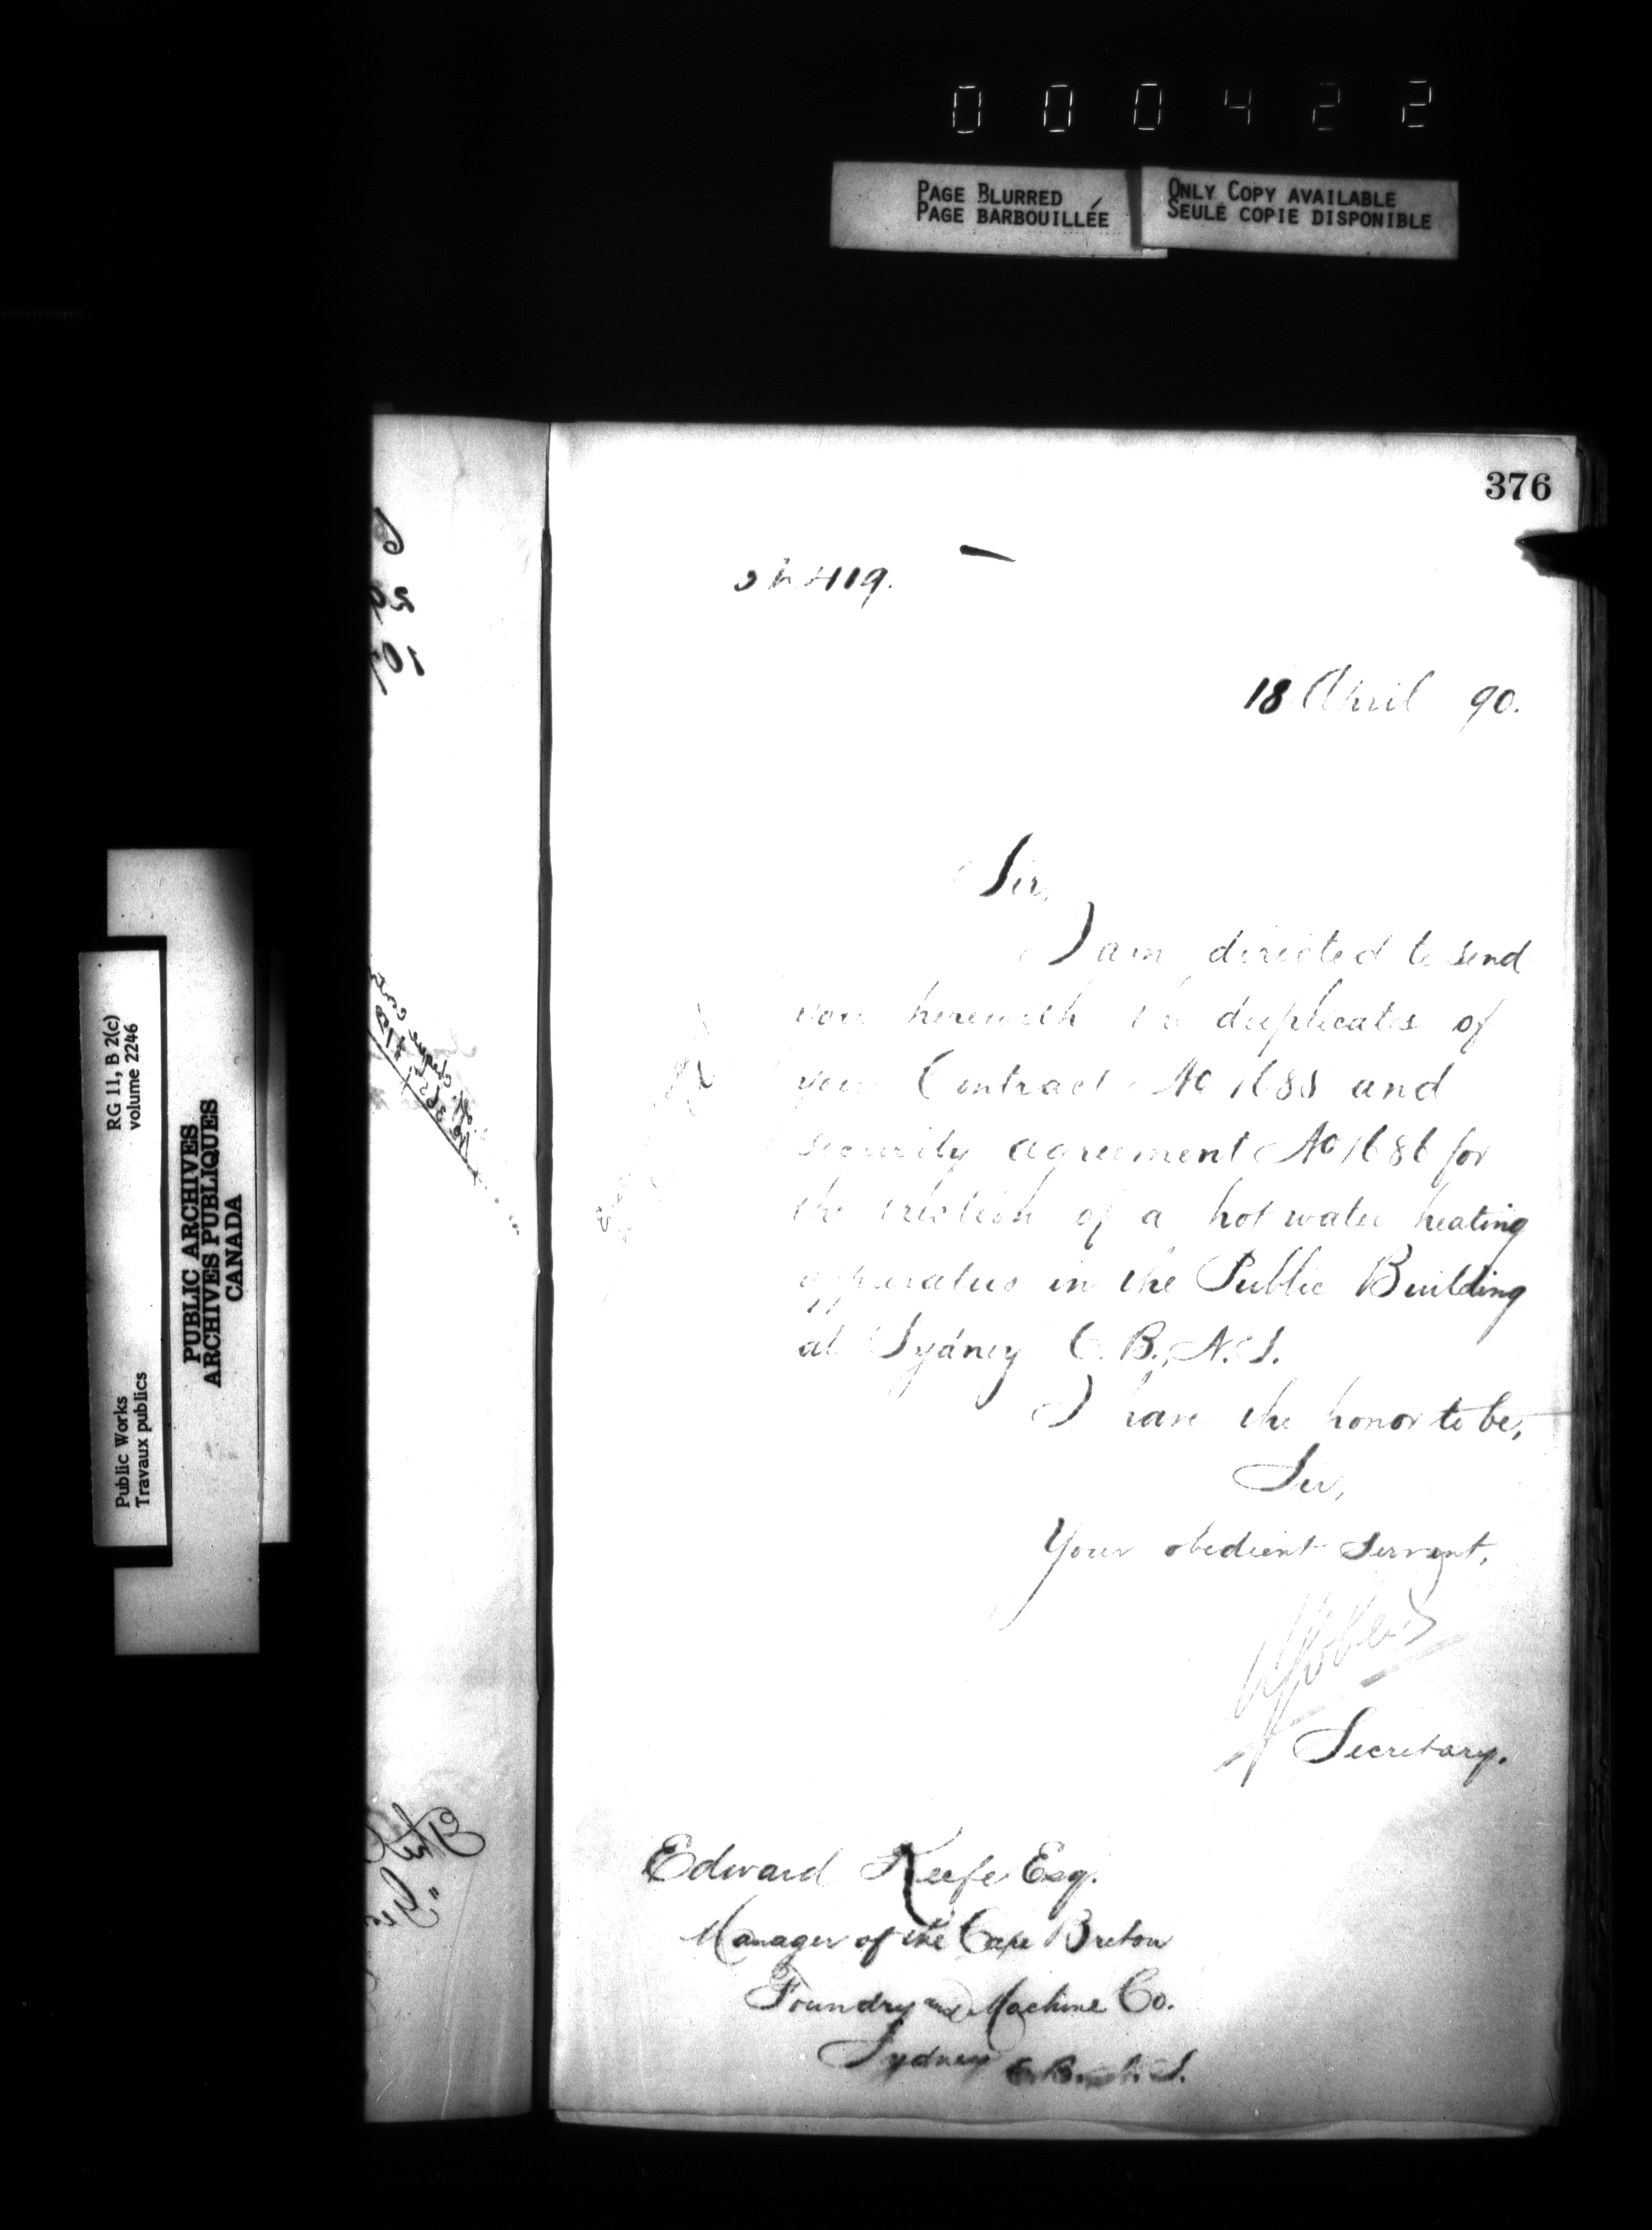 000422
PAGE BLURRED
PAGE BARBOUILLÉE
ONLY COPY AVAILABLE
SEULE COPIE DISPONIBLE
RG 11, B 2(c)
volume 2246
Public Works
Travaux publics
PUBLIC ARCHIVES
ARCHIVES PUBLIQUES
CANADA
376
419.
18 April 90.
Sir,
I am directed to send
you herewith the duplicates of
your Contract No 1685 and
security agreement No 1686 for
the erection of a hot water heating
apparatus in the Public Building
at Sydney C. B., N. S.
I have the honor to be,
Sir,
Your obedient servant,
Secretary.
Edward Keefe Esq.
Manager of the Cape Breton
Foundry and Machine Co.
Sydney C. B. N. S.